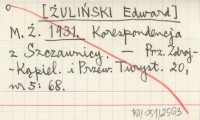 [ŻULIŃSKI Edward]
M. Ż. 1931. Korespondencja
z Szczawnicy. — Prz. Zdroj-
Kąpiel. i Przew. Turyst. 20,
nr 5: 68.